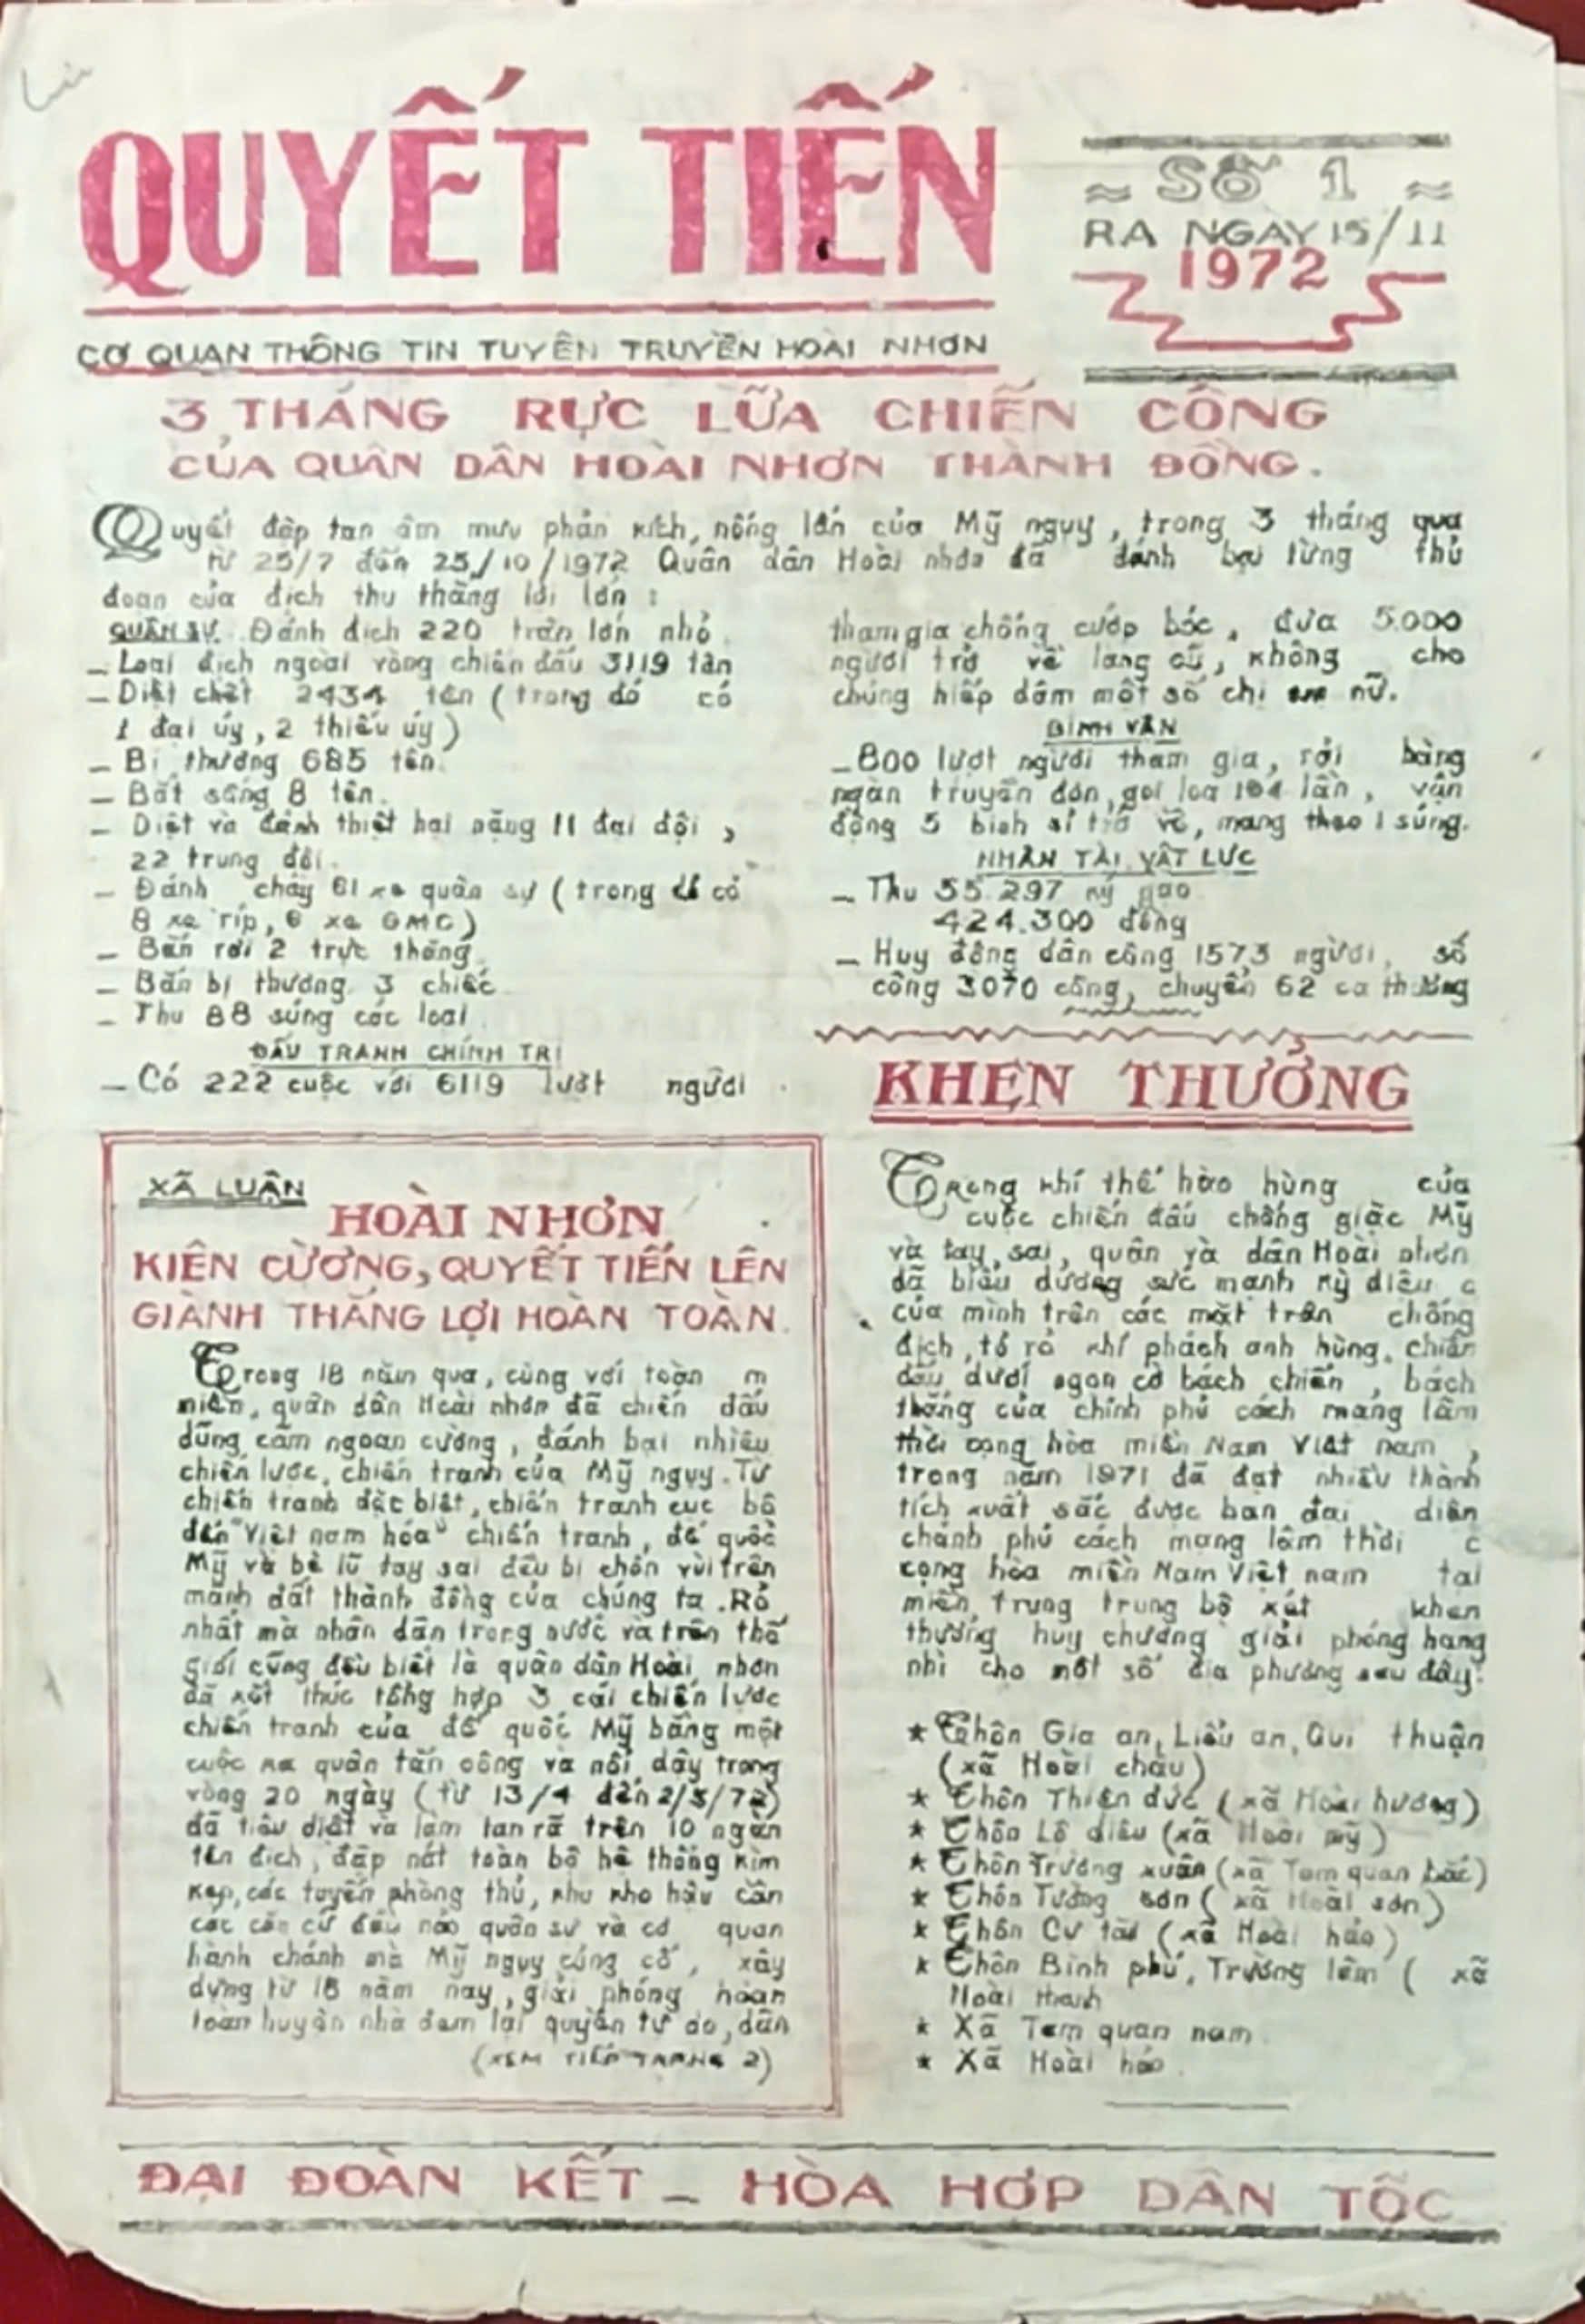 QUYẾT TIẾN
SỐ 1
RA NGAY 15/11
1972
CƠ QUAN THÔNG TIN TUYÊN TRUYỀN HOÀI NHƠN
3 THÁNG RỰC LỮA CHIẾN CÔNG
CỦA QUÂN DÂN HOÀI NHƠN THÀNH ĐỒNG.
Quyết đập tan âm mưu phản kích, nống lấn của Mỹ ngụy, trong 3 tháng qua
từ 25/7 đến 25/10/1972 Quân dân Hoài nhơn đã đánh bại từng thủ
đoạn của địch thu thắng lợi lớn :
QUÂN SỰ. Đánh địch 220 trận lớn nhỏ.
- Loại địch ngoài vòng chiến đấu 3119 tên
- Diệt chết 2434 tên (trong đó có
1 đại úy, 2 thiếu úy)
- Bị thương 685 tên.
- Bắt sống 8 tên.
- Diệt và đánh thiệt hại nặng 11 đại đội,
22 trung đội.
- Đánh cháy 61 xe quân sự (trong đó có
8 xe ríp, 6 xe GMC)
- Bắn rơi 2 trực thăng.
- Bắn bị thương 3 chiếc.
- Thu 88 súng các loại
ĐẤU TRANH CHÍNH TRỊ
- Có 222 cuộc với 6119 lượt người
tham gia chống cướp bóc, đưa 5.000
người trở về làng cũ, không cho
chúng hiếp dâm một số chị em nữ.
BINH VẬN
- 800 lượt người tham gia, rải hàng
ngàn truyền đơn, gọi loa 104 lần, vận
động 5 binh sĩ trở về, mang theo 1 súng.
NHÂN TÀI VẬT LỰC
- Thu 55.297 ký gạo
424.300 đồng
- Huy động dân công 1573 người, số
công 3070 công, chuyển 62 ca thương
KHEN THƯỞNG
Trong khí thế hào hùng của
cuộc chiến đấu chống giặc Mỹ
và tay sai, quân và dân Hoài nhơn
đã biểu dương sức mạnh kỳ diệu c
của mình trên các mặt trận chống
địch, tỏ rỏ khí phách anh hùng, chiến
đấu dưới ngọn cờ bách chiến, bách
thắng của chính phủ cách mạng lâm
thời cọng hòa miền Nam Việt nam,
trong năm 1971 đã đạt nhiều thành
tích xuất sắc được ban đại diện
chánh phủ cách mạng lâm thời c
cọng hòa miền Nam Việt nam tại
miền trung trung bộ xét khen
thưởng huy chương giải phóng hạng
nhì cho một số địa phương sau đây:
* Thôn Gia an, Liễu an, Qui thuận
(xã Hoài châu)
* Thôn Thiện đức (xã Hoài hương)
* Thôn Lộ diêu (xã Hoài mỹ)
* Thôn Trường xuân (xã Tam quan bắc)
* Thôn Tường sơn (xã Hoài sơn)
* Thôn Cự tài (xã Hoài hảo)
* Thôn Bình phú, Trường lâm ( xã
Hoài thanh
* Xã Tam quan nam
* Xã Hoài hảo.
XÃ LUẬN
HOÀI NHƠN
KIÊN CƯỜNG, QUYẾT TIẾN LÊN
GIÀNH THẮNG LỢI HOÀN TOÀN.
Trong 18 năm qua, cùng với toàn m
miền, quân dân Hoài nhơn đã chiến đấu
dũng cảm ngoan cường, đánh bại nhiều
chiến lược, chiến tranh của Mỹ ngụy. Từ
chiến tranh đặc biệt, chiến tranh cục bộ
đến "Việt nam hóa" chiến tranh, đế quốc
Mỹ và bè lũ tay sai đều bị chôn vùi trên
mảnh đất thành đồng của chúng ta. Rỏ
nhất mà nhân dân trong nước và trên thế
giới cũng đều biết là quân dân Hoài nhơn
đã kết thúc tổng hợp 3 cái chiến lược
chiến tranh của đế quốc Mỹ bằng một
cuộc ra quân tấn công và nổi dậy trong
vòng 20 ngày (từ 13/4 đến 2/5/72)
đã tiêu diệt và làm tan rã trên 10 ngàn
tên địch, đập nát toàn bộ hệ thống kìm
kẹp, các tuyến phòng thủ, khu kho hậu cần
các căn cứ đầu não quân sự và cơ quan
hành chánh mà Mỹ ngụy cũng cố, xây
dựng từ 18 năm nay, giải phóng hoàn
toàn huyện nhà đem lại quyền tự do, dân
(XEM TIẾP TRANG 2)
ĐẠI ĐOÀN KẾT - HÒA HỢP DÂN TỘC